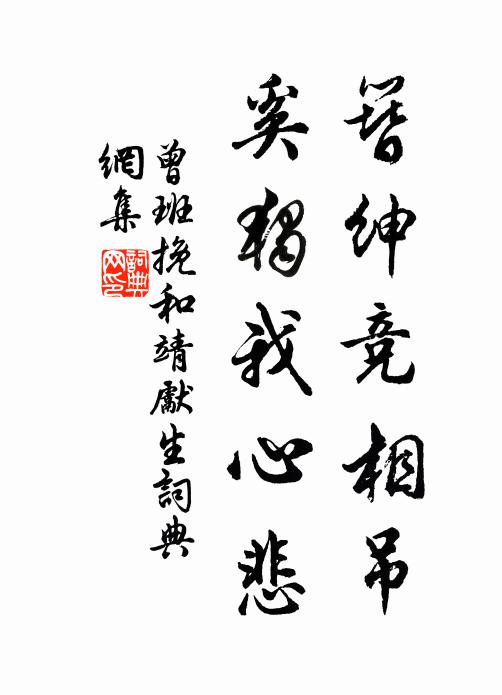 簪紳竞相吊
奚獨我心悲
曾班挽和靖獻生詞典
網集
詞典
网印